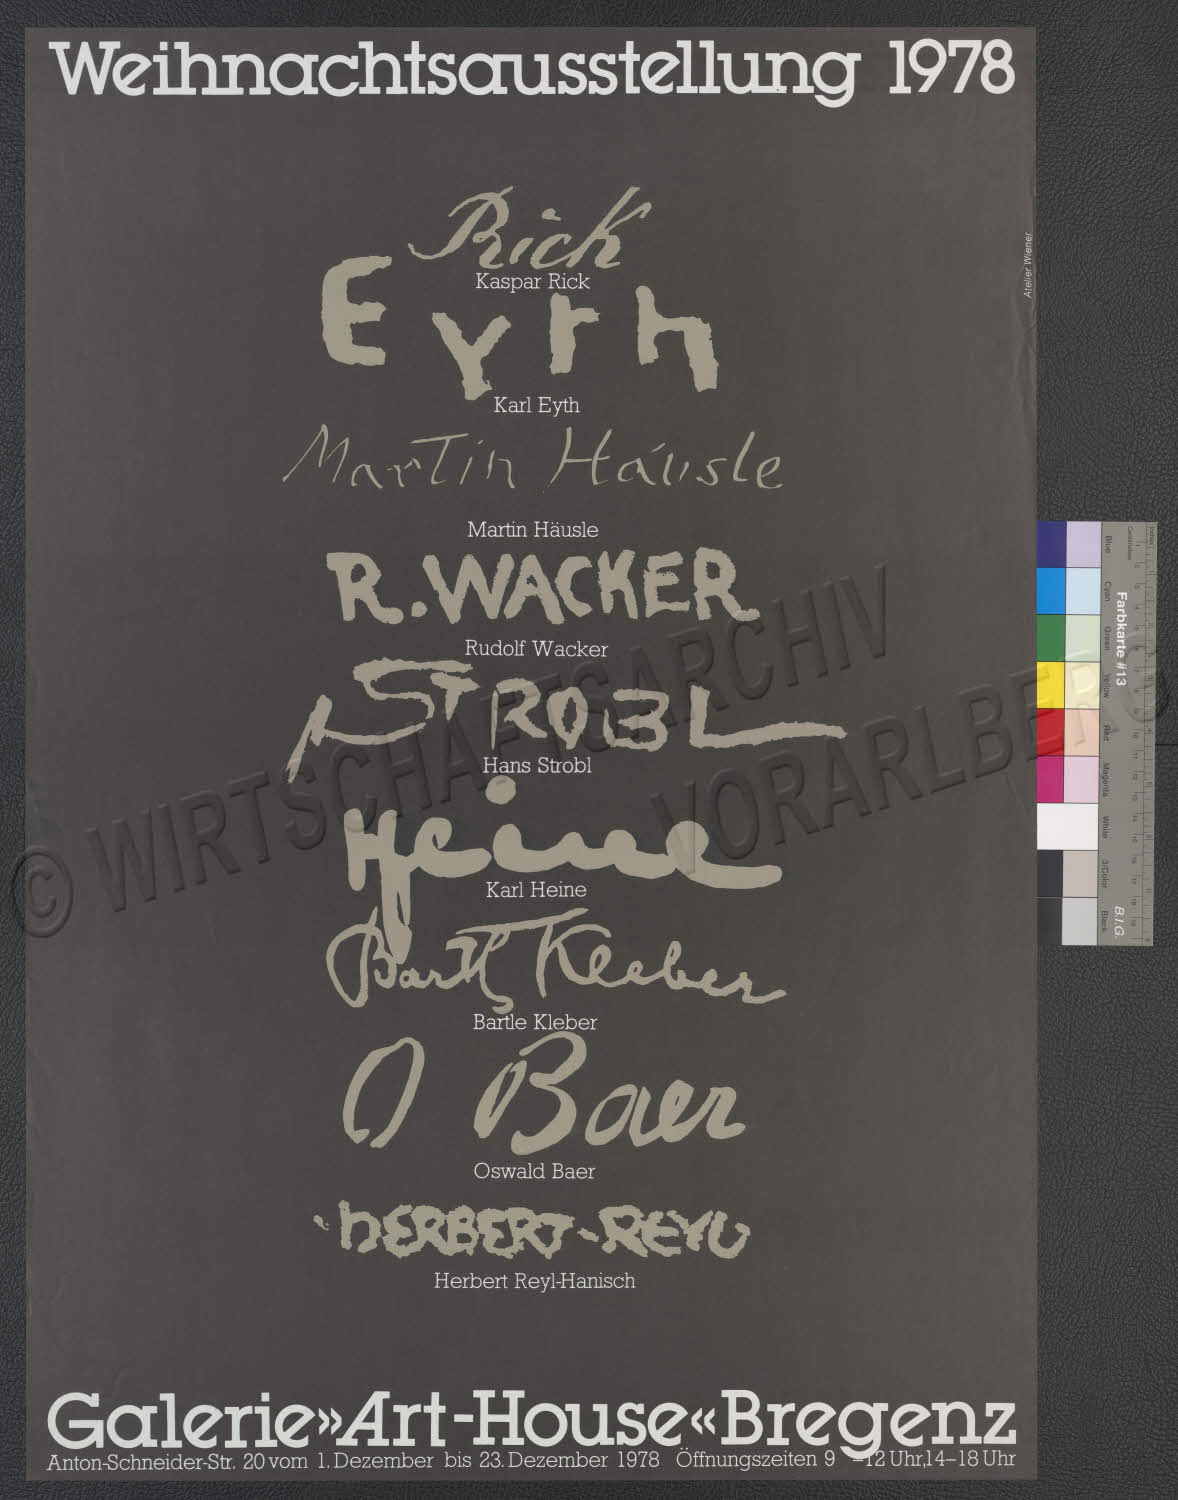 Weihnachtsausstellung 1978
Rick
Kaspar Rick
Eyth
Karl Eyth
Martin Häusle
Martin Häusle
R. WACKER
Rudolf Wacker
STROBL
Hans Strobl
Heine
Karl Heine
Barth Kleber
Bartle Kleber
O Baer
Oswald Baer
HERBERT-REYL
Herbert Reyl-Hanisch
Galerie»Art-House«Bregenz
Anton-Schneider-Str. 20 vom 1. Dezember bis 23. Dezember 1978 Öffnungszeiten 9 –12 Uhr, 14–18 Uhr
Atelier Wiener
© WIRTSCHAFTSARCHIV
VORARLBERG
Farbkarte #13
B.I.G.
Blue
Cyan
Green
Yellow
Red
Magenta
White
3/Color
Black